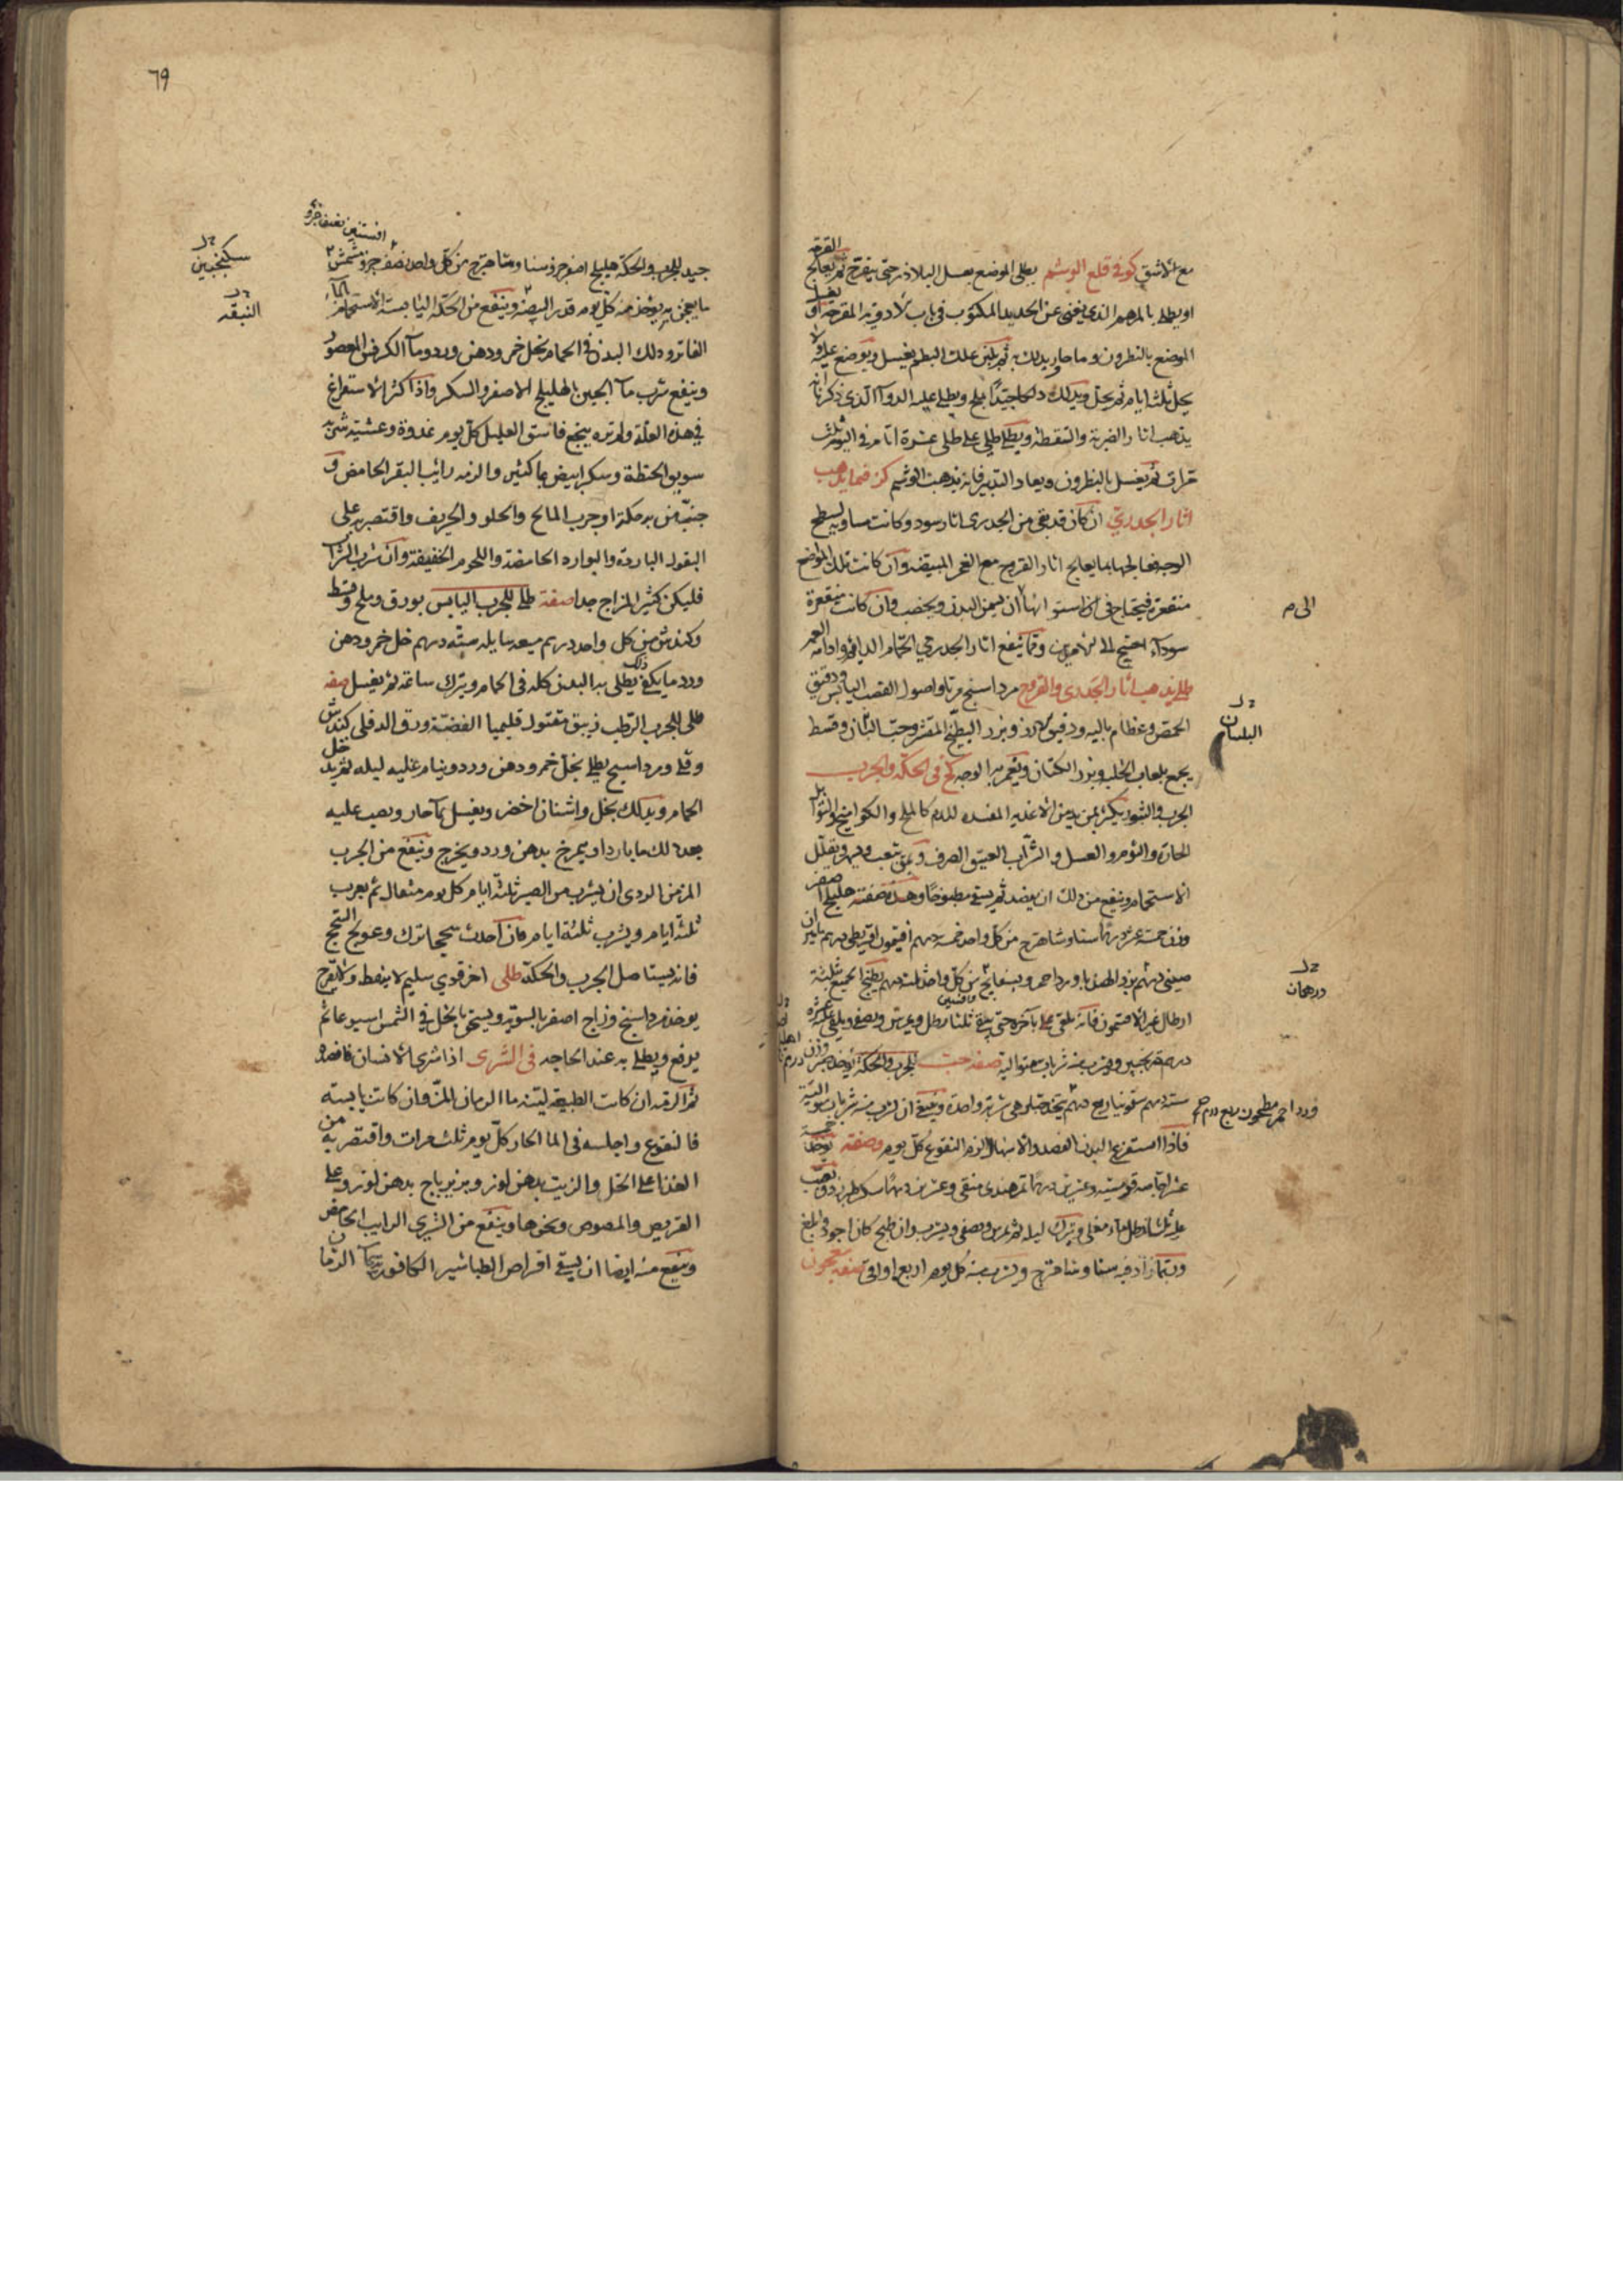 مع الاشق كو في قلع الوشم يطلى الموضع بعسل البلاذر حتى يتقرح ثم يعالج القرحة
او يطلى بالمرهم الذي يغنى عن الحديد المكتوب في باب الادوية المقرحة او يغسل
الموضع بالنطرون وماء حار ويدلك به ثم علك البطم يغسل ويوضع عليه اولا
يحل ثلثة ايام ثم يحل ويدلك دلكا جيدا بملح ويطلى عليه الدوآ الذي ذكرنا انه
يذهب اثار الضربة والسقطة ويطلى طلى على طلى عشرة ايام في اليوم ثلث
مرات ثم يغسل بالنطرون ويعاد التدبير فانه يذهب الوشم كز فيما يذهب
اثار الجدري ان كان قد بقي من الجدرى اثار سود وكانت مساويه لسطح
الوجه فعالجها بما يعالج اثار القروح مع الغمر المبيضه وان كانت تلك المواضع
منقعرة فيحتاج في استوائها ان يسمن البدن ويخصب وان كانت منقعرة
سودآء احتيج الى الامرين ومما ينفع اثار الجدري الحمام الدائم وادامة الغمر
طلى يذهب اثار الجدرى والقروح مرداسنج مربا واصول القصب اليابس ودقيق
الحمص وعظام باليه ودقيق الارز وبزر البطيخ المقشر وحب البان وقسط
يجمع بلعاب الحلبه وبزر الكتان ويغمر به الوجه كح في الحكة والجرب
الجرب والبثور يكثر بمن يدمن الاغذيه المفسده للدم كالملح والكوامخ والتوابل
الحارة والثوم والعسل والشراب العتيق الصرف وبمن يتعب ويسهر ويقلل
الاستحمام وينفع من ذلك ان يفصد ثم يسقى مطبوخا وهذه صفته هليلج اصفر
وزن خمسة عشر درهما سنا وشاهترج من كل واحد خمسة دراهم افتيمون اقريطى درهم
درهم بزر الهندبا وورد احمر وبسفايج من كل واحد ثلثة دراهم يطبخ الجميع بثلثة
ارطال غير الافتيمون فانه يلقى باخره حتى يبقى ثلثا رطل ويمرس ويصفى ويلقى عليه عشرة
درهم ترنجبين ويشرب منه شربات متوالية صفة حب للجرب والحكة يؤخذ صبر وزن
ستة دراهم سقمونيا ربع درهم يتخذ حبا وهى شربة واحدة وينبغي ان يشرب منه شربات متوالية
فاذا استفرغ البدن بالفصد والاسهال الزم النقوع كل يوم وصفته يوخذ خمسة
عشر اجاصه قومسيه وعشرين درهما تمر هندي منقى وعشرين درهما سكر طبرزد ويصب
عليه ثلثا رطل ماء مغلى ويترك ليله ثم يمرس ويصفى ويشرب وان طبخ كان اجود وابلغ
وربما زاد فيه سنا وشاهترج ويشرب منه كل يوم اربع اواقى صفة معجون
الى م
البلسان
درهمان
وورد احمر مطحون ربع درهم صح
٦٩
جيد للجرب والحكة هليلج اصفر جزؤ سنا وشاهترج من كل واحد نصف جزؤ مشمش
افسنتين نصف جزؤ
ما يعجن به يؤخذ منه كل يوم قدر البيضة وينفع من الحكة اليابسة الاستحمام بالماء
الفاتر ودلك البدن في الحمام بخل خمر ودهن ورد ومآ الكرفس المعصور
وينفع شرب مآ الجبن بالهليلج الاصفر والسكر واذا كثر الاستفراغ
في هذه العلة ولم تره ينجع فاسق العليل كل يوم غدوة وعشية شربة
سويق الحنطة وسكر ابيض بما كثير والزمه رائب البقر الحامض و
جنب من به حكة او جرب المالح والحلو والحريف واقتصر به على
البقول الباردة والبوارد الحامضة واللحوم الخفيفة وان شرب الشراب
فليكن كثير المزاج جدا صفة طلى للجرب اليابس بورق وملح وقسط
وكندش من كل واحد درهم ميعه سايله ستة درهم خل خمر ودهن
ورد ما يكفى يطلى به البدن كله في الحمام ويترك ساعة ثم يغسل صفه
طلى للجرب الرطب زيبق مقتول قليميا الفضة ورق الدفلى كندش
وقلى ومرداسنج يطلى بخل خمر ودهن ورد وينام عليه ليله ثم يدخل
الحمام ويدلك بخل واشنان اخضر ويغسل بمآ حار ويصب عليه
بعد ذلك ما بارد او يمرخ بدهن ورد ويخرج وينفع من الجرب
المزمن الردى ان يشرب من الصبر ثلثة ايام كل يوم مثقال ثم يغب
ثلثة ايام ويشرب ثلثة ايام فان احدث سحجا ترك وعولج السحج
فانه يستاصل الجرب والحكة طلى اخر قوي سليم لا ينفط ولا يقرح
يوخذ مرداسنج وزاج اصفر بالسويه ويسحق بالخل في الشمس اسبوعا ثم
يرفع ويطلى به عند الحاجه في الشرى اذا شرى الانسان فافصده
ثم الزمه ان كانت الطبيعه لينه ما الرمان المز وان كانت يابسه
فالنقوع واجلسه في الما الحار كل يوم ثلث مرات واقتصر به من
الغذا على الخل والزيت بدهن لوز وبزيرباج بدهن لوز وعلى
القريص والمصوص ونحوها وينفع من الشرى الرايب الحامض
وينفع منه ايضا ان يسقى اقراص الطباشير الكافورية بمآ الرمان
سكنجبين
النبقه